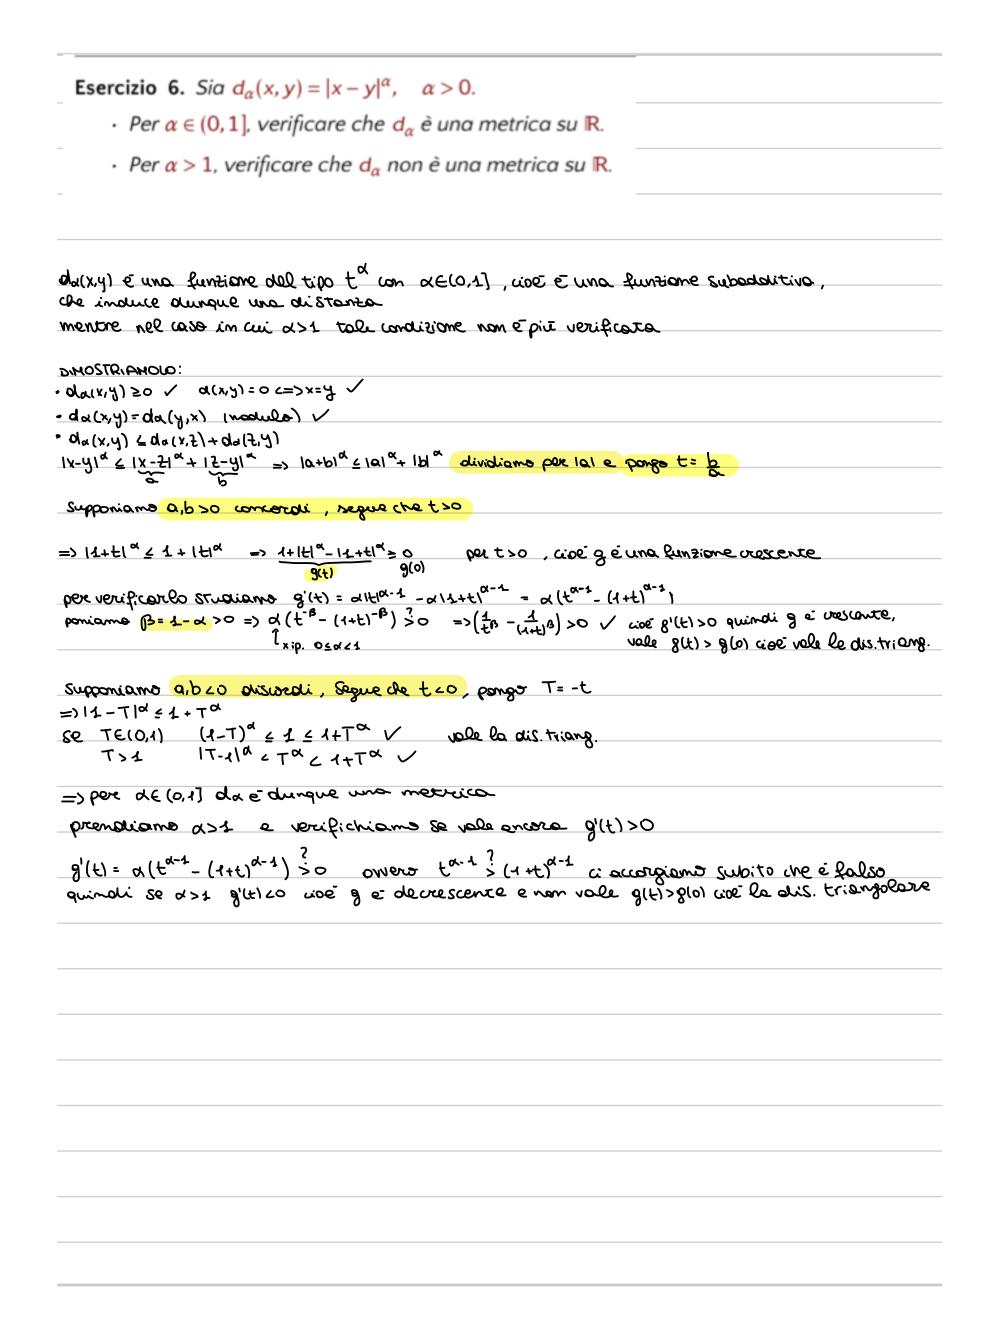 Esercizio 6. Sia dα(x, y) = |x − y|^α, α > 0.
· Per α ∈ (0, 1], verificare che dα è una metrica su ℝ.
· Per α > 1, verificare che dα non è una metrica su ℝ.
dα(x,y) è una funzione del tipo t^α con α∈(0,1], cioè è una funzione subadditiva,
che induce dunque una distanza
mentre nel caso in cui α>1 tale condizione non è più verificata
DIMOSTRIAMOLO:
· dα(x,y) ≥0 ✓ d(x,y)=0 <=> x=y ✓
· dα(x,y)=dα(y,x) (modulo) ✓
· dα(x,y) ≤ dα(x,z)+dα(z,y)
|x-y|^α ≤ |x-z|^α + |z-y|^α => |a+b|^α ≤ |a|^α + |b|^α dividiamo per |a| e pongo t= b/a
a b
Supponiamo a,b>0 concordi, segue che t>0
=> |1+t|^α ≤ 1 + |t|^α => 1+|t|^α - |1+t|^α ≥ 0 per t>0, cioè g è una funzione crescente
g(t) g(0)
per verificarlo studiamo g'(t) = α|t|^α-1 - α|1+t|^α-1 = α(t^α-1 - (1+t)^α-1)
poniamo β= 1-α >0 => α(t^-β - (1+t)^-β) >? 0 => (1/t^β - 1/(1+t)^β) >0 ✓ cioè g'(t)>0 quindi g è crescente,
x ip. 0≤α<1 vale g(t) > g(0) cioè vale la dis.triang.
Supponiamo a,b<0 discordi, segue che t<0, pongo T= -t
=> |1-T|^α ≤ 1+T^α
se T∈(0,1) (1-T)^α ≤ 1 ≤ 1+T^α ✓ vale la dis.triang.
T>1 |T-1|^α < T^α < 1+T^α ✓
=> per α∈(0,1] dα è dunque una metrica
prendiamo α>1 e verifichiamo se vale ancora g'(t)>0
g'(t)= α(t^α-1 - (1+t)^α-1) >? 0 ovvero t^α-1 >? (1+t)^α-1 ci accorgiamo subito che è falso
quindi se α>1 g'(t)<0 cioè g è decrescente e non vale g(t)>g(0) cioè la dis. triangolare